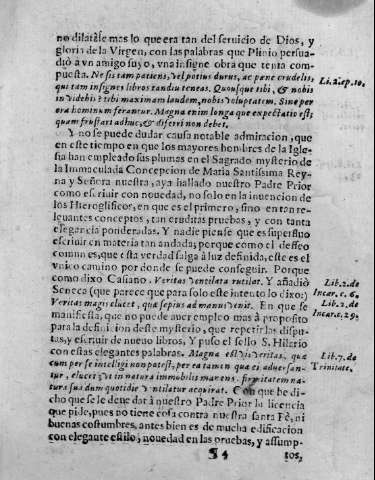 no dilatasse mas lo que era tan del seruicio de Dios, y
gloria de la Virgen, con las palabras que Plinio persua-
diò à vn amigo suyo, vna insigne obra que tenia com-
puesta. Ne sis tam patiens, vel potius durus, ac pæne crudelis,
qui tam insignes libros tandiu teneas. Quousque tibi, & nobis
inuidebis? tibi maximam laudem, nobis voluptatem. Sine per
ora hominum ferantur. Magna enim longa que expectatio est;
quam frustari adhuc, & diferri non debet.
Li. 2. ep. 10.
Y no se puede dudar causa notable admiracion, que
en este tiempo en que los mayores hombres de la Igle-
sia han empleado sus plumas en el Sagrado mysterio de
la Immaculada Concepcion de Maria Santissima Rey-
na y Señora nuestra, aya hallado nuestro Padre Prior
como escriuir con nouedad, no solo en la inuencion de
los Hieroglificos, en que es el primero, sino en tan re-
leuantes conceptos, tan eruditas pruebas, y con tanta
elegancia ponderadas. Y nadie piense que es superfluo
escriuir en materia tan andada; porque como el desseo
comun es, que esta verdad salga à luz definida, este es el
vnico camino por donde se puede conseguir. Porque
como dixo Casiano. Veritas ventilata rutilat. Y añadiò
Seneca (que parece que para solo este intento lo dixo:)
Veritas magis elucet, quò sæpius ad manus venit. En que se
manifiesta, que no puede auer empleo mas à proposito
para la definicion deste mysterio, que repetir las dispu-
tas, y escriuir de nueuo libros. Y puso el sello S. Hilario
con estas elegantes palabras. Magna est vis veritatis, quæ
cum per se intelligi non possit, per ea tamen quæ ei aduersan-
tur, elucet; vt in natura immobilis manens, firmitatem na-
turæ suæ dum quotidie ventilatur acquirat. Con que he di-
cho que se le deue dar à nuestro Padre Prior la licencia
que pide, pues no tiene cosa contra nuestra santa Fè, ni
buenas costumbres, antes bien es de mucha edificacion
con elegante estilo, nouedad en las pruebas, y assump-
Lib. 2. de
Incar. c. 6.
Lib. 2. de
Incar. c. 29.
Lib. 7. de
Trinitate.
§ 4 tos,